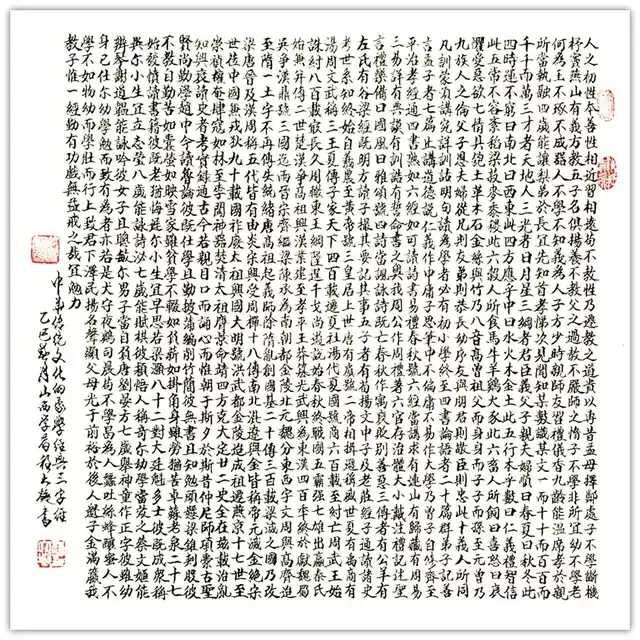 人之初性本善性相近習相遠苟不教性乃遷教之道貴以專昔孟母擇鄰處子不學斷機
杼竇燕山有義方教五子名俱揚養不教父之過教不嚴師之惰子不學非所宜幼不學老
何為玉不琢不成器人不學不知義為人子方少時親師友習禮儀香九齡能溫席孝於親
所當執融四歲能讓梨弟於長宜先知首孝悌次見聞知某數識某文一而十十而百百而
千千而萬三才者天地人三光者日月星三綱者君臣義父子親夫婦順曰春夏曰秋冬此
四時運不窮曰南北曰西東此四方應乎中曰水火木金土此五行本乎數曰仁義禮智信
此五常不容紊稻粱菽麥黍稷此六穀人所食馬牛羊雞犬豕此六畜人所飼曰喜怒曰哀
懼愛惡欲七情具匏土革木石金絲與竹乃八音高曾祖父而身身而子子而孫至元曾乃
九族人之倫父子恩夫婦從兄則友弟則恭長幼序友與朋君則敬臣則忠此十義人所同
凡訓蒙須講究詳訓詁明句讀為學者必有初小學終至四書論語者二十篇群弟子記善
言孟子者七篇止講道德說仁義作中庸子思筆中不偏庸不易作大學乃曾子自修齊至
平治孝經通四書熟如六經始可讀詩書易禮春秋號六經當講求有連山有歸藏有周易
三易詳有典謨有訓誥有誓命書之奧我周公作周禮著六官存治體大小戴注禮記述聖
言禮樂備曰國風曰雅頌號四詩當諷詠詩既亡春秋作寓褒貶別善惡三傳者有公羊有
左氏有穀梁經既明方讀子撮其要記其事五子者有荀揚文中子及老莊經子通讀諸史
考世系知終始自羲農至黃帝號三皇居上世唐有虞號二帝相揖遜稱盛世夏有禹商有
湯周文武稱三王夏傳子家天下四百載遷夏社湯伐夏國號商六百載至紂亡周武王始
誅紂八百載最長久周轍東王綱墜逞干戈尚遊說始春秋終戰國五霸強七雄出嬴秦氏
始兼并傳二世楚漢爭高祖興漢業建至孝平王莽篡光武興為東漢四百年終於獻魏蜀
吳爭漢鼎號三國迄兩晉宋齊繼梁陳承為南朝都金陵北元魏分東西宇文周興高齊迨
至隋一土宇不再傳失統緒唐高祖起義師除隋亂創國基二十傳三百載梁滅之國乃改
梁唐晉及漢周稱五代皆有由炎宋興受周禪十八傳南北混遼與金皆稱帝元滅金絕宋
世莅中國兼戎狄九十載國祚廢太祖興國大明號洪武都金陵迨成祖遷燕京十七世至
崇禎權奄肆寇如林至李闖神器焚清太祖膺景命靖四方克大定廿二史全在茲載治亂
知興衰讀史者考實錄通古今若親目口而誦心而惟朝于斯夕于斯昔仲尼師項橐古聖
賢尚勤學趙中令讀魯論彼既仕學且勤披蒲編削竹簡彼無書且知勉頭懸梁錐刺股彼
不教自勤苦如囊螢如映雪家雖貧學不輟如負薪如掛角身雖勞猶苦卓蘇老泉二十七
始發憤讀書籍彼既老猶悔遲爾小生宜早思若梁灝八十二對大廷魁多士彼既成眾稱
異爾小生宜立志瑩八歲能詠詩泌七歲能賦棋彼穎悟人稱奇爾幼學當效之蔡文姬能
辨琴謝道韞能詠吟彼女子且聰敏爾男子當自警唐劉晏方七歲舉神童作正字彼雖幼
身已仕爾幼學勉而致有為者亦若是犬守夜雞司晨苟不學曷為人蠶吐絲蜂釀蜜人不
學不如物幼而學壯而行上致君下澤民揚名聲顯父母光於前裕於後人遺子金滿籯我
教子惟一經勤有功戲無益戒之哉宜勉力
中華傳統文化的蒙學經典三字經
乙巳月山西學府程大書